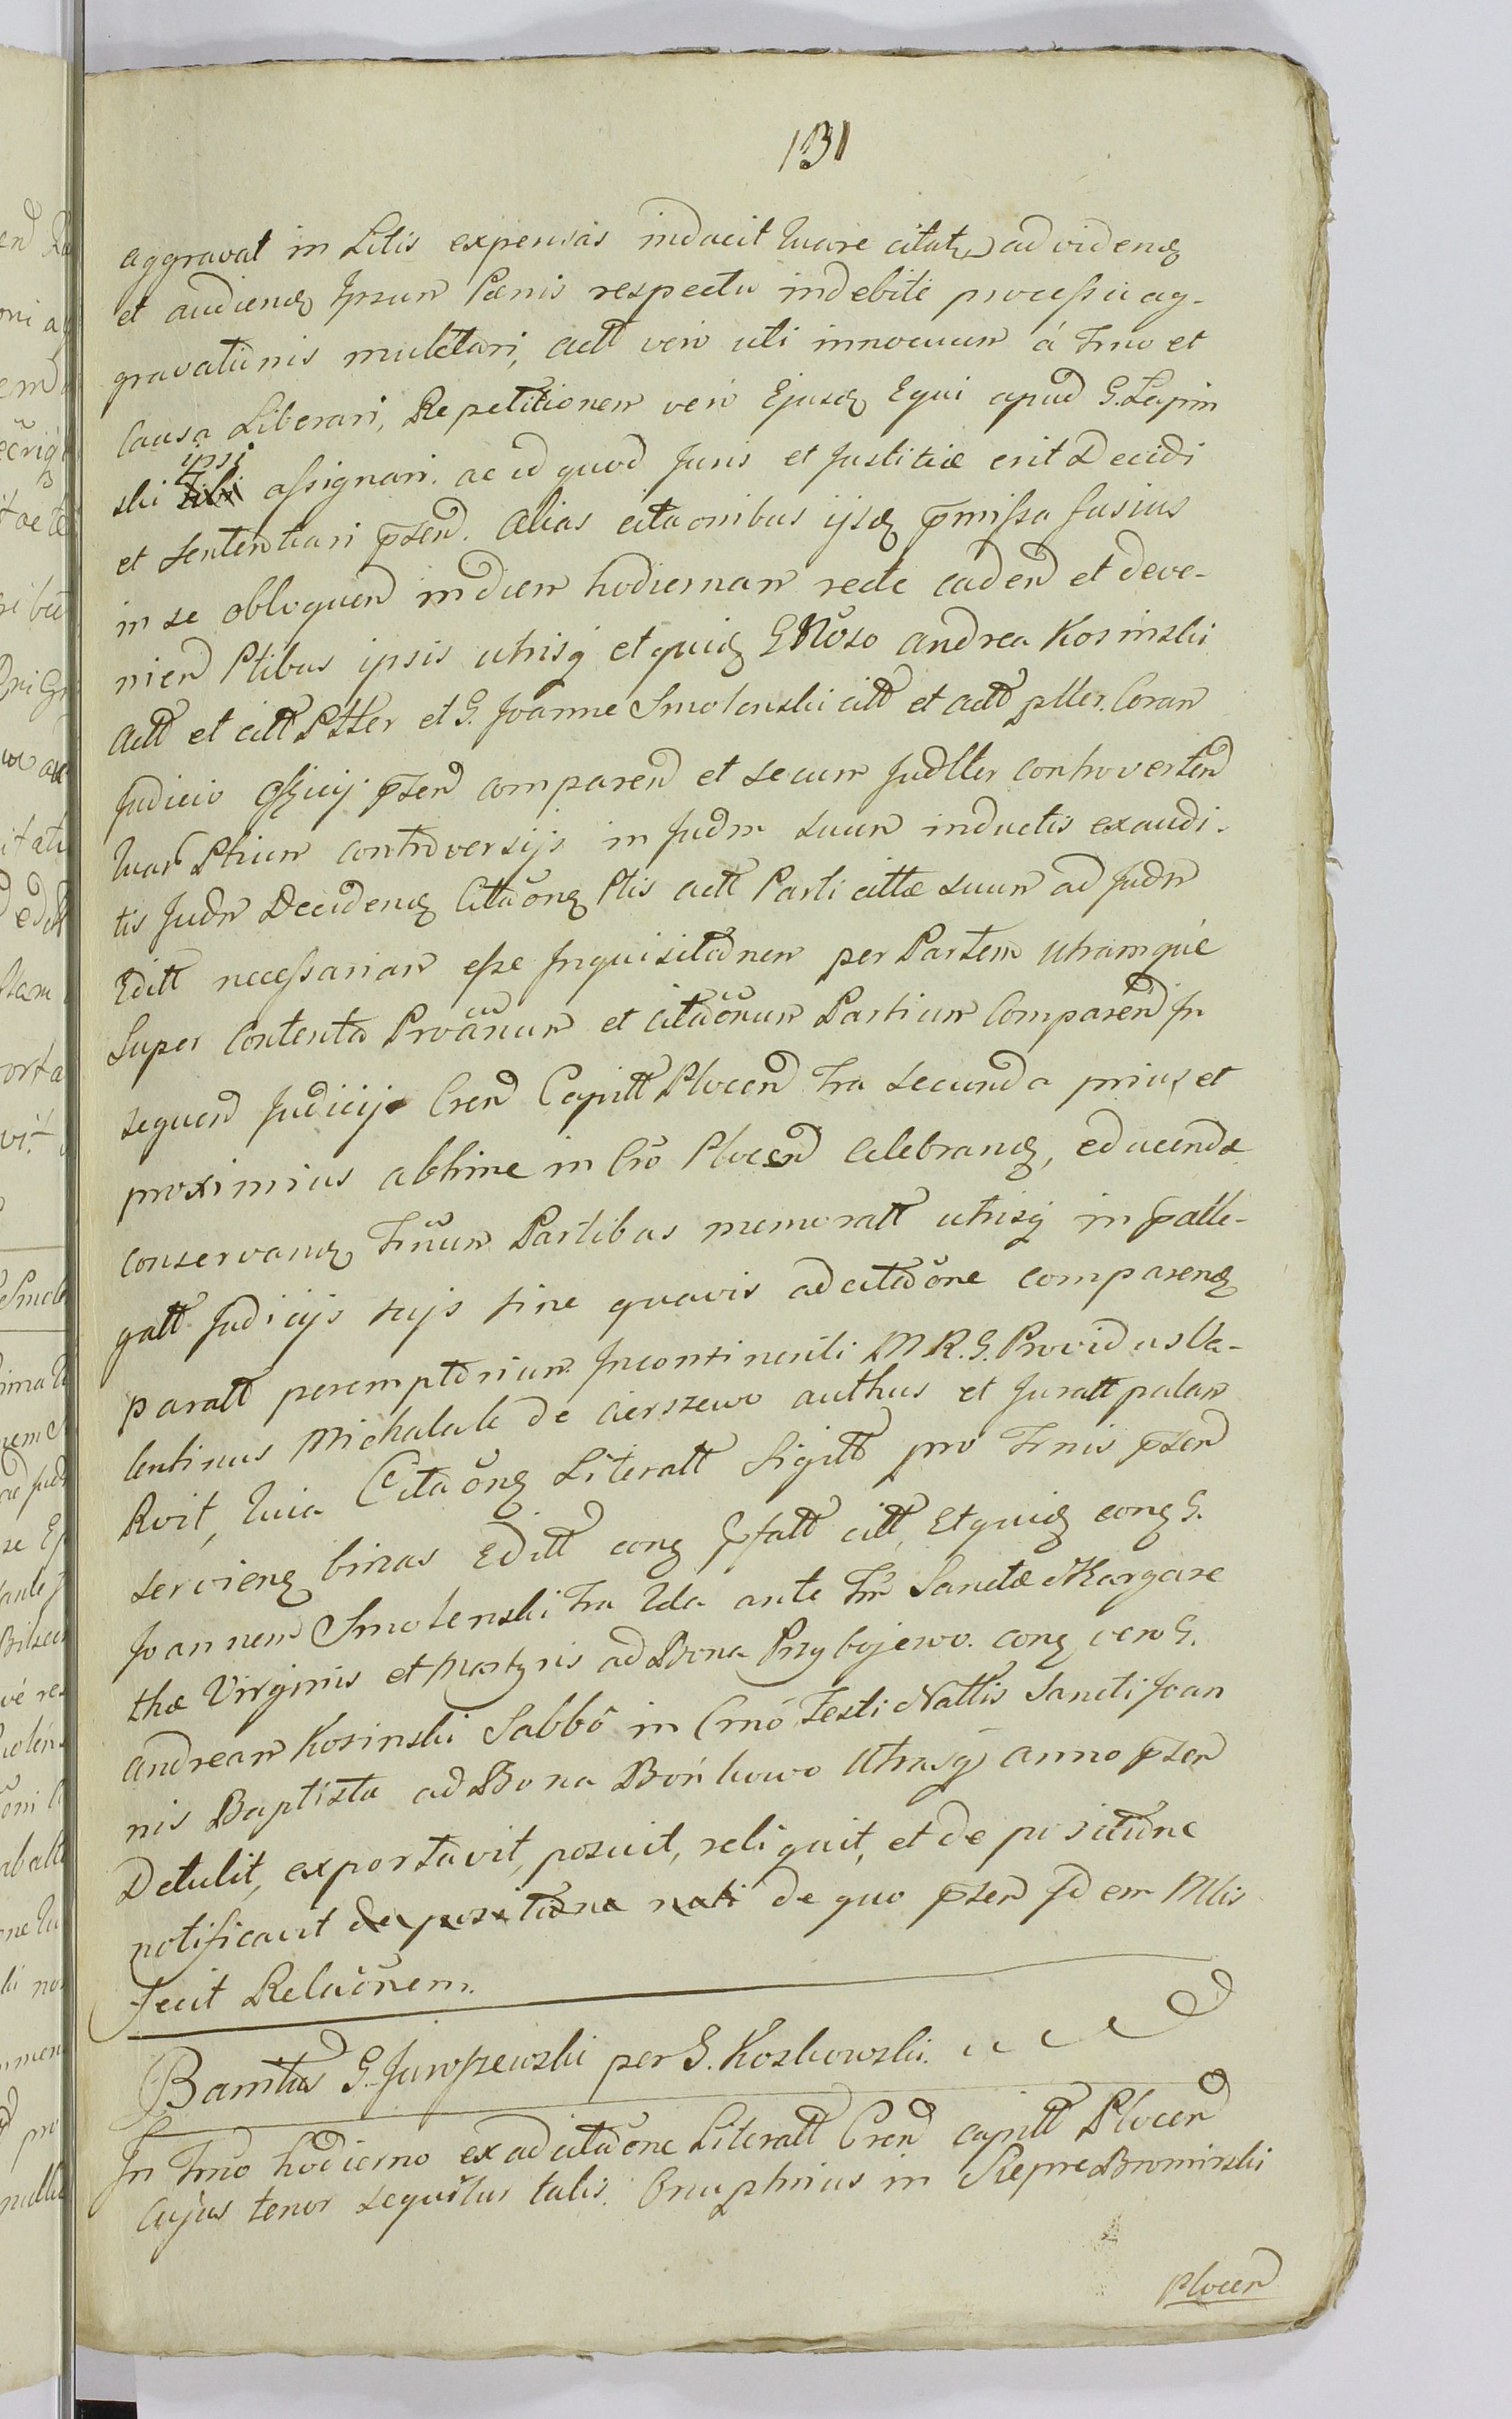 131
aggravat in Litis expensas inducit quare citatq ad videnq
et audienq Ipsum Pœnis respectu indebite processu ag-
gravationis mulctari, actt vero uti innocuum á Trno et
Causa Liberari, Repetitionem vero Ejusq Equi apud G. Lapin
ski ipsi assignari. ac id quod Juris et Justitiæ erit Decidi
et sententiari p̄sen. Alias citaonibus ijsq p̄missa fusius
in se obloquen in diem hodiernam recte caden et deve-
nien Ptibus ipsis utrisq et quiq G Nõso Andrea Kosinski
Actt et citt Ptter et G. Joanne Smolenski citt et actt ptter. Coram
Judicio Officij p̄sen comparen et secum Judtter controverten
quar Ptium controversijs in Judm suum inductis exaudi-
tis Judm Decidenq Citaõnq Ptis actt Parti cittæ suum ad Judm
Editt necessariam esse Inquisitionem per Partem utramque
Super Contenta Proãnum et citaõnum Partium Comparen In
sequen Judicijs Cren Capitt Plocen Fra secunda prius et
proximius abhinc in Crõ Plocen celebranq, educenda
conservanq Trnũm Partibus memoratt utrisq in p̄alle-
gatt Judicijs suis sine quavis adcitaõne comparenq
paratt peremptorium Incontinenti M R. G. Providus Va-
lentinus Michalak de Cierszewo authus et Juratt palam
Rvit, quia Citaõnq Literatt Sigitt pro Trnis p̄sen
servienq binas Editt conq p̄fatt citt, Et quiq conq G.
Joannem Smolenski Fra 2da ante Fm Sanctæ Margare
thæ Virginis et Martyris ad Bona Przybojewo. conq vero G.
Andream Kosinski Sabbõ in Crnõ Festi Nattis Sancti Joan
nis Baptistæ ad Bona Bońkowo Utrasq anno p̄sen
Detulit, exportavit, posuit, reliquit, et de positione
notificavit de positione de quo p̄sen Idem Mlis
fecit Relaõnem.
Banitus G. Juroszewski per G. Koskowski.
In Trnõ hodierno ex adcitaõne Literatt Cren capitt Plocen
cujus tenor sequitur talis. Onuphrius in Siepre Bromirski
Plocen